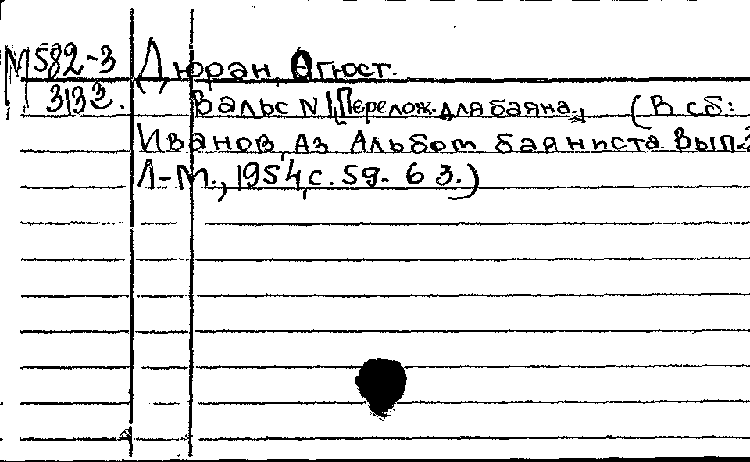 М582-3 Дюран, Огюст.
3133. Вальс N1, [Перелож. для баяна.] (В сб:
Иванов, Аз. Альбом баяниста. Вып.2
Л-М., 1954, с. 59-63.)